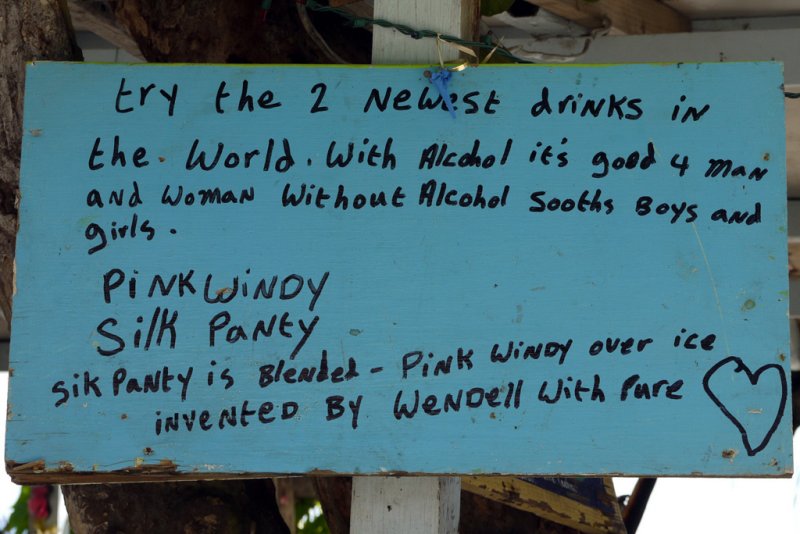 try the 2 Newest drinks in
the. World. With Alcohol it's good 4 man
and Woman Without Alcohol Sooths Boys and
girls.
PINK WINDY
Silk Panty
Sik Panty is Blended - Pink Windy over ice
invented By Wendell With Pure ♡